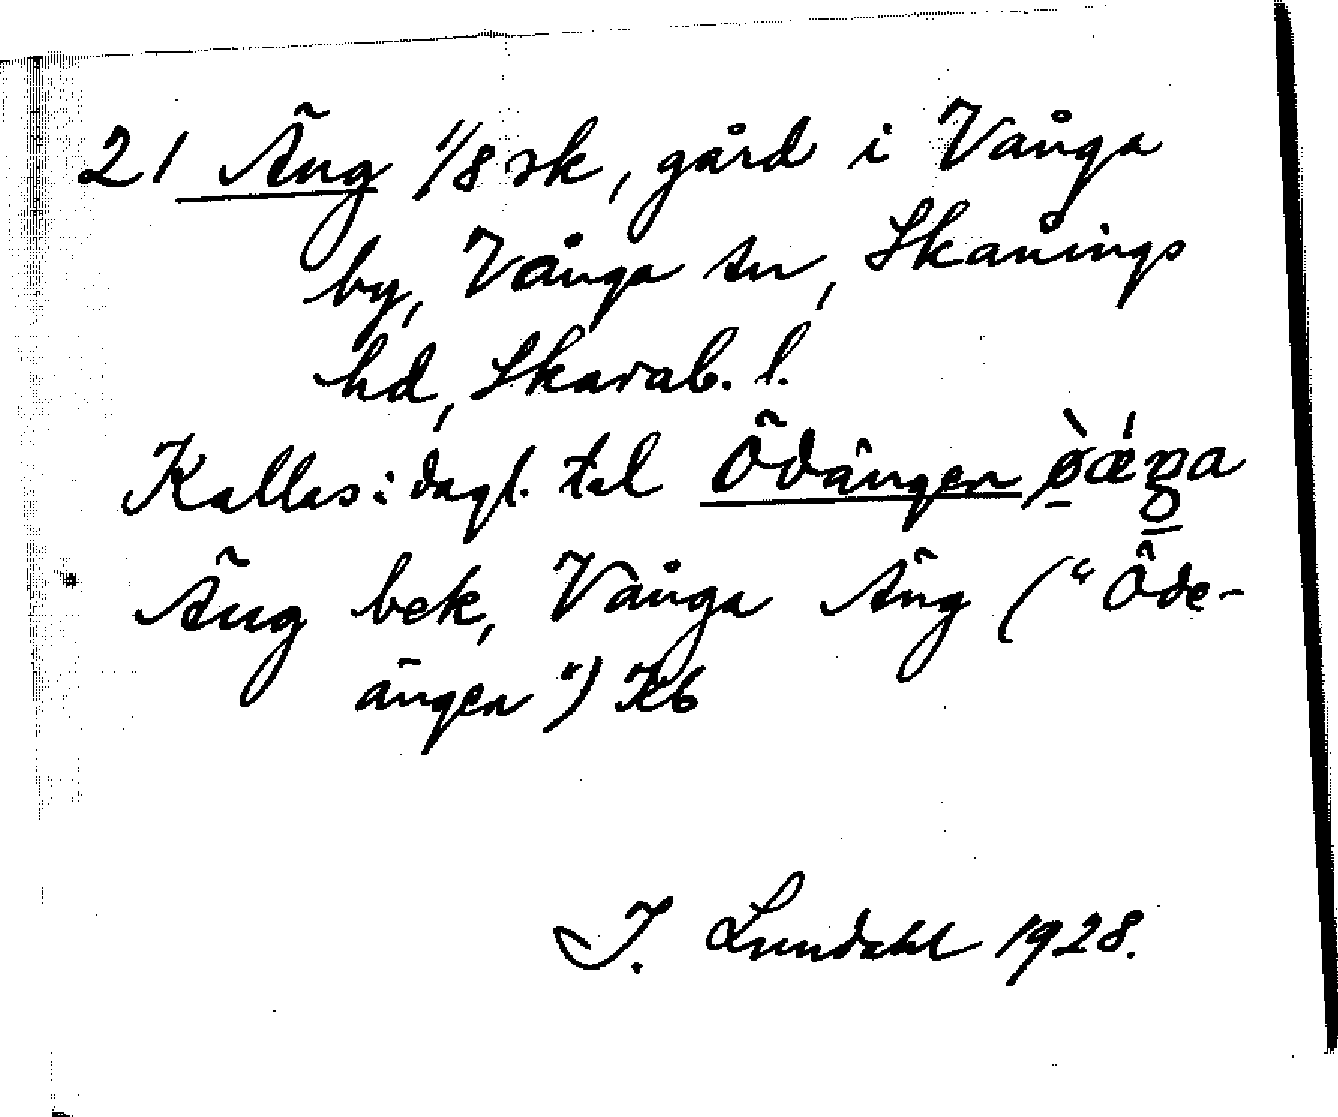 21 Äng 1/8 sk, gård i Vånga
by, Vånga sn, Skånings
hd, Skarab. l.
Kallas i dagl. tal Ödängen
Äng bek, Vånga Äng ("Öde-
ängen") Kb
I. Lundahl 1928.